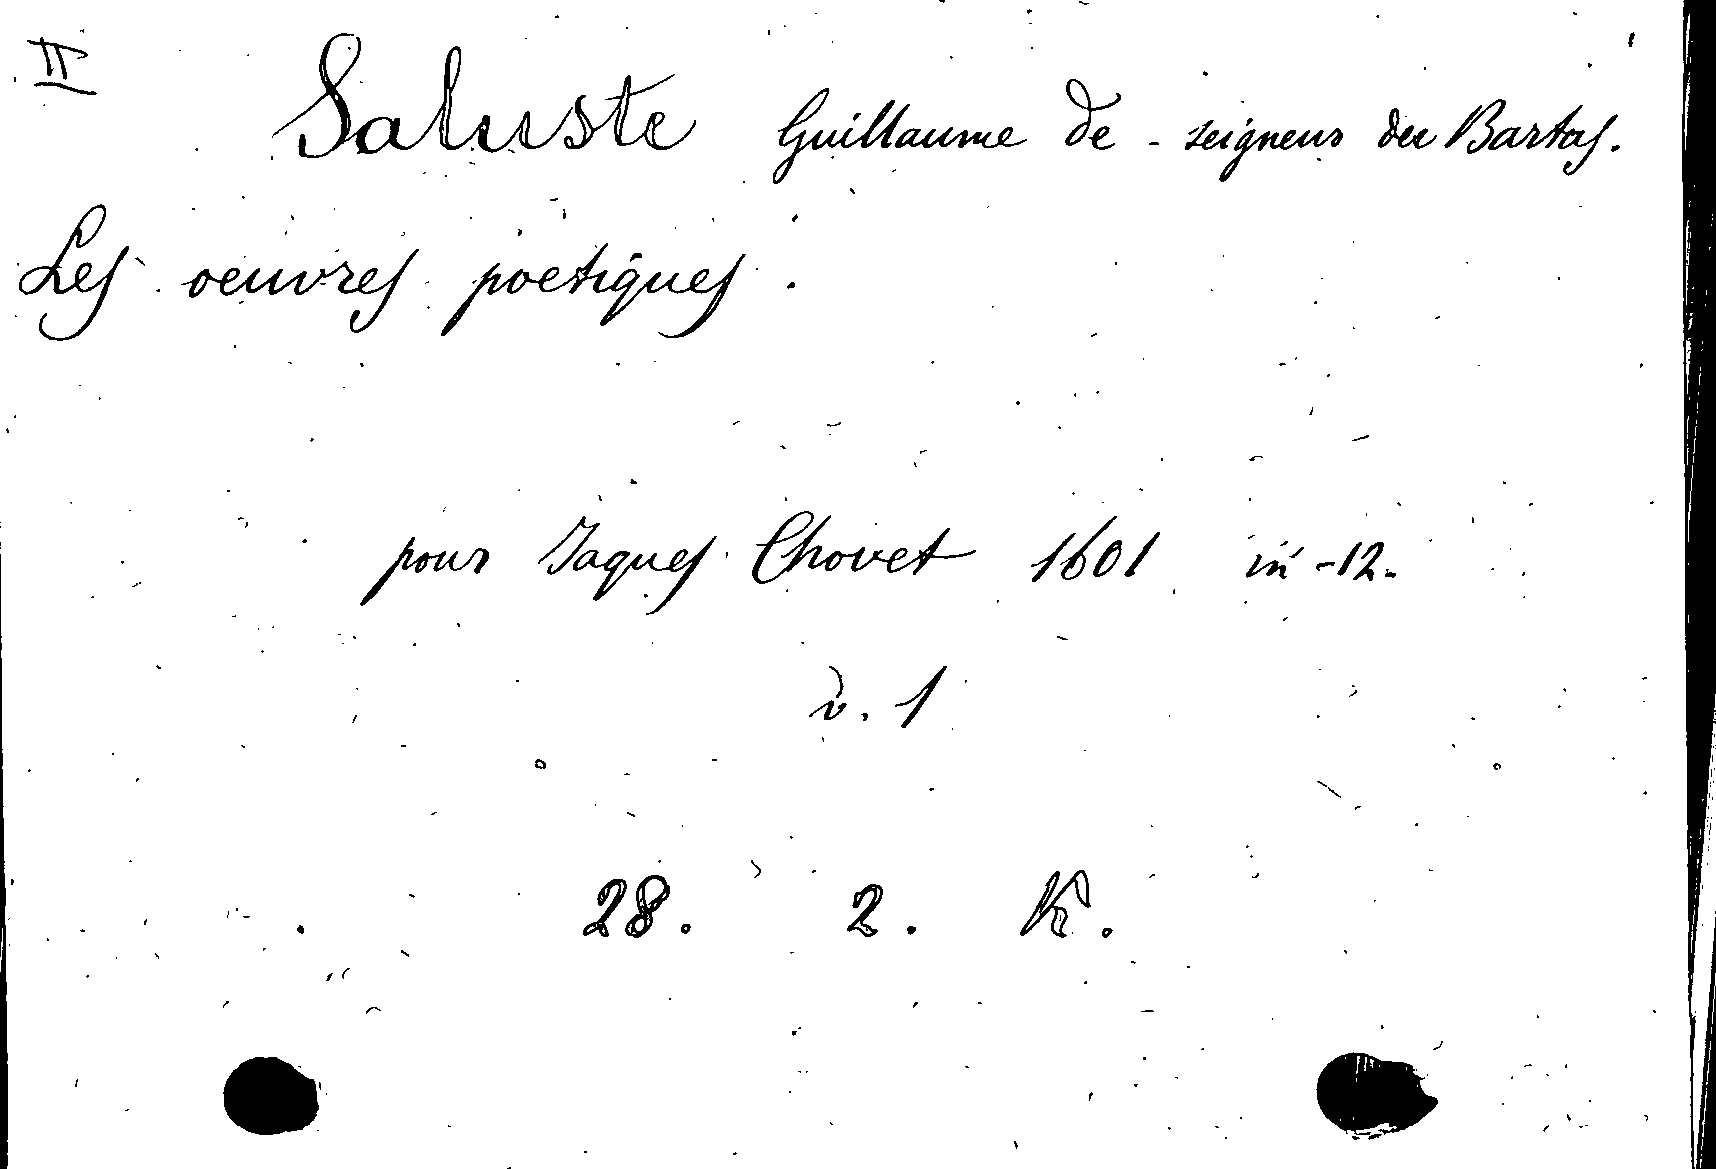 II
Saluste Guillaume de - seigneur du Bartas.
Les oeuvres poetiques.
pour Jaques Chovet 1601 in-12.
v. 1
28. 2. K.